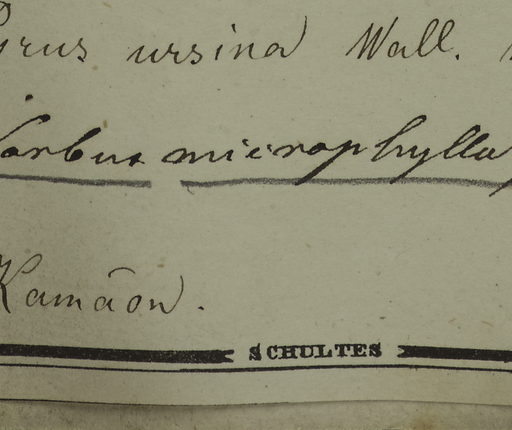 Pirus ursina Wall.
Sorbus microphylla,
Kamāon.
SCHULTES